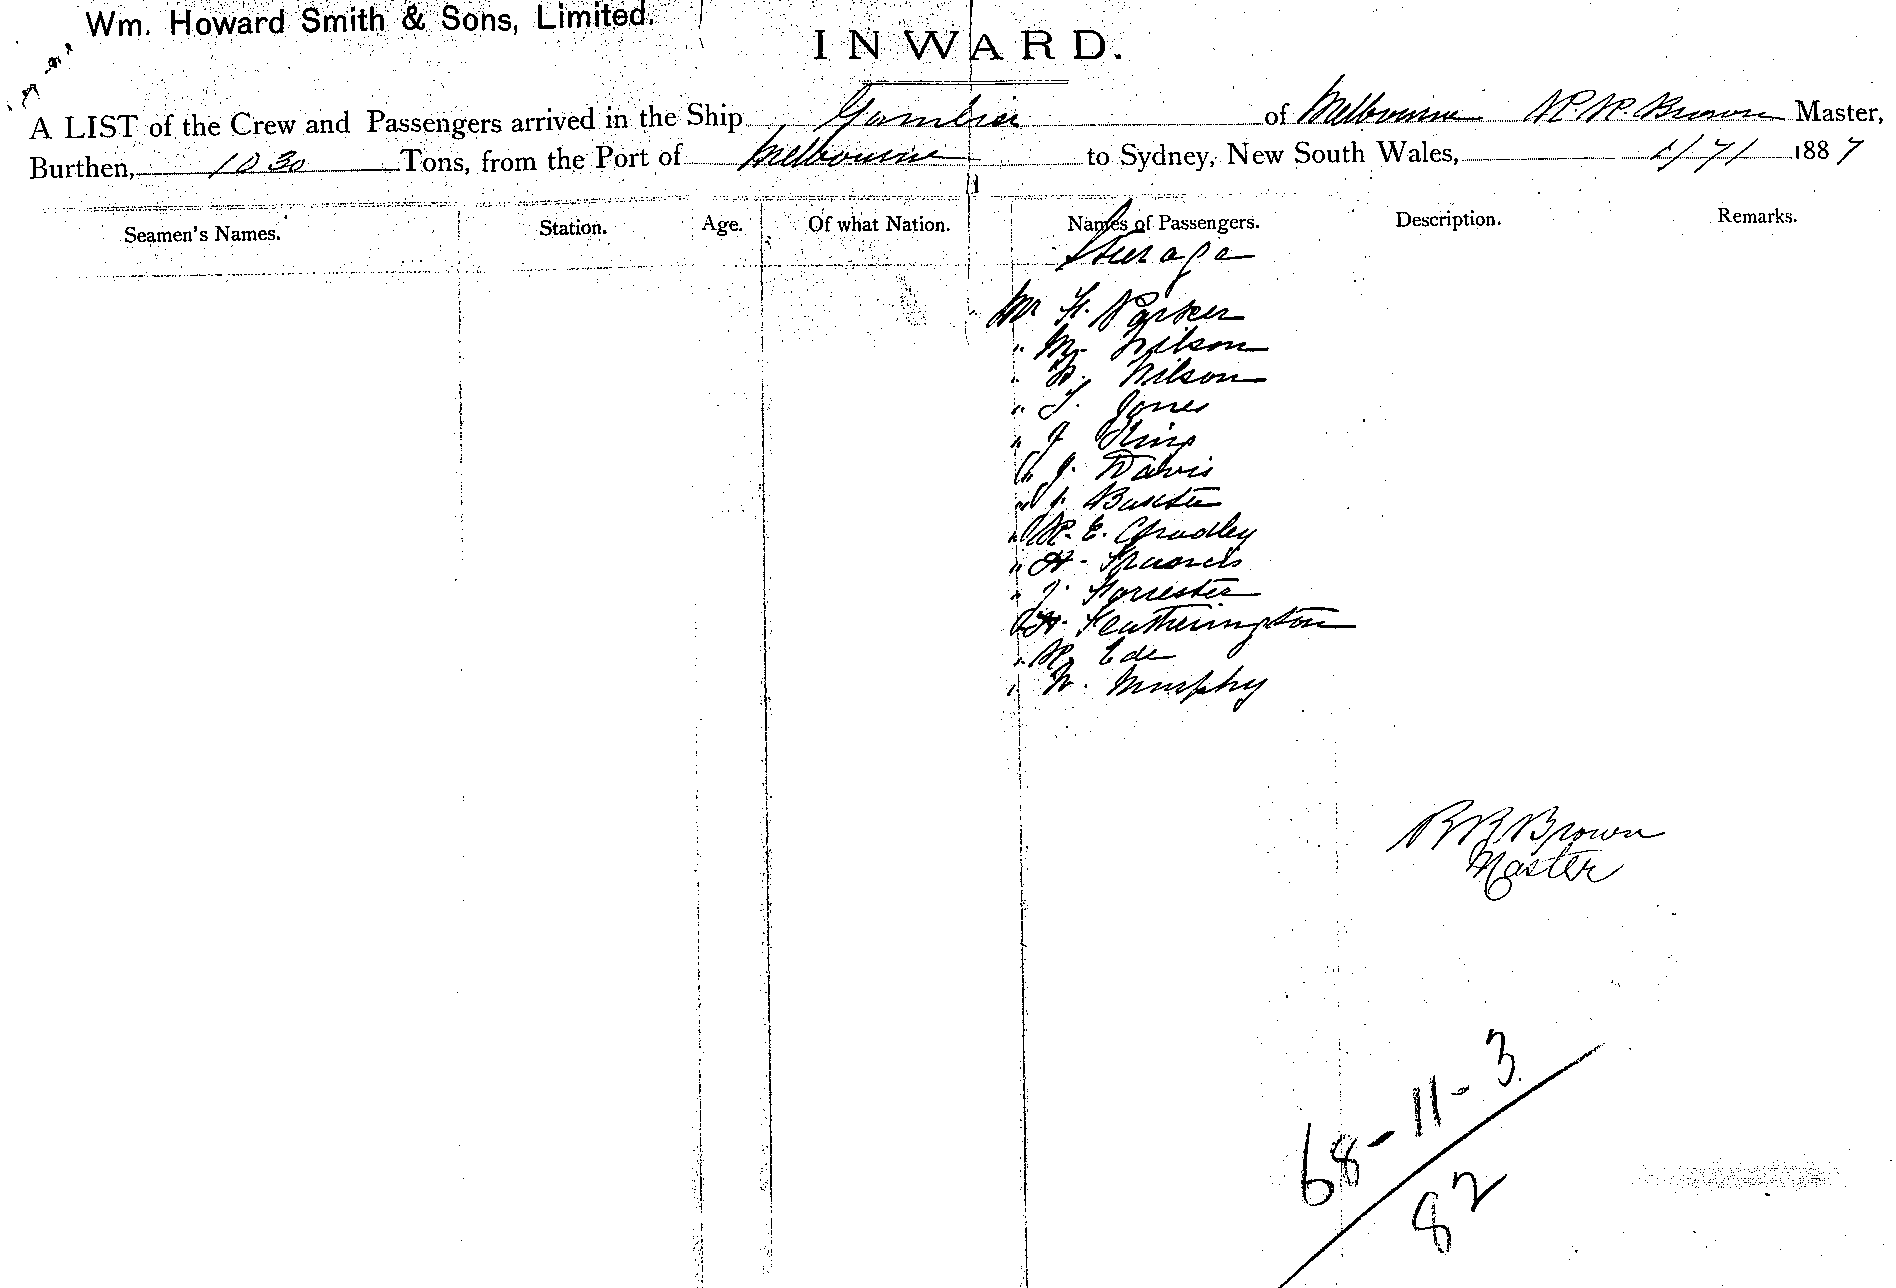 Wm. Howard Smith & Sons, Limited.
INWARD.
A LIST of the Crew and Passengers arrived in the Ship Gambier of Melbourne R. R. Brown Master,
Burthen, 1030 Tons, from the Port of Melbourne to Sydney, New South Wales, /7/ 1887
Seamen's Names. Station. Age. Of what Nation. Names of Passengers. Description. Remarks.
Steerage
Mr H. Parker
" M. Wilson
" Wilson
" T. Jones
" J King
" J. Davis
" Baxter
" R. E. Chadley
" H. Francis
" J. Forrester
" H. Featherington
" Ede
" W. Murphy
R R Brown
Master
68-11-3
82